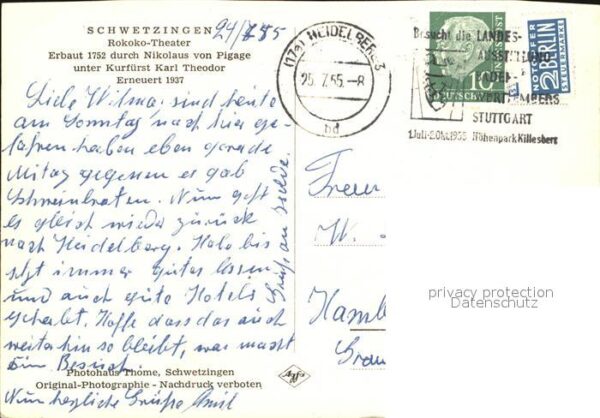 SCHWETZINGEN
Rokoko-Theater
Erbaut 1752 durch Nikolaus von Pigage
unter Kurfürst Karl Theodor
Erneuert 1937
24/7 55
Liebe Wilma, sind heute
am Sonntag nach hier ge-
fahren haben eben gerade
Mitag gegessen es gab
Schweinbraten. Nun geht
es gleich wieder zurück
nach Heidelberg. Habe bis
jetzt immer gutes Essen
und auch gute Hotels
gehabt. Hoffe dass das auch
weiterhin so bleibt, was macht
Ein Besuch.
Photohaus Thome, Schwetzingen
Original-Photographie - Nachdruck verboten
Nun herzliche Grüsse Emil
Grüsse an
Agfa
(17a) HEIDELBERG 3
25.7.55.-8
bd
Besucht die LANDES-
AUSSTELLUNG
BADEN-
WÜRTTEMBERG
STUTTGART
1.Juli-2.Okt.1955 Höhenpark Killesberg
10
DEUTSCHE BUNDESPOST
NOTOPFER
2 BERLIN
STEUERMARKE
Frau
W.
Hamb
privacy protection
Datenschutz